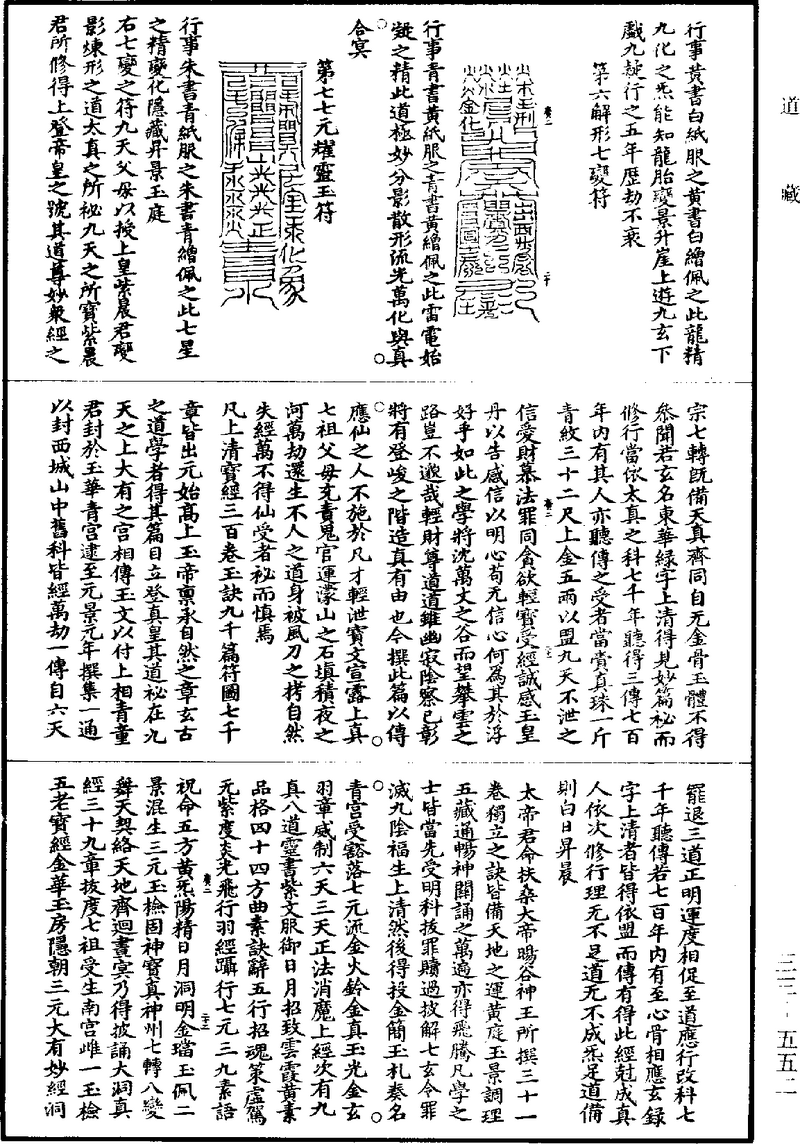 道藏
行事黄書白紙服之黄書白繒佩之此龍精
九化之炁能知龍胎變景升崖上遊九玄下
戲九凝行之五年歷劫不衰
第六解形七變符
行事青書黄紙服之青書黄繒佩之此雷電始
凝之精此道極妙分影散形流光萬化與真
合冥
第七七元耀靈玉符
行事朱書青紙服之朱書青繒佩之此七星
之精變化隱藏昇景玉庭
右七變之符九天父母以授上皇紫晨君變
影煉形之道太真之所祕九天之所寶紫晨
君所修得上登帝皇之號其道尊妙衆經之
宗七轉旣備天真齊同自无金骨玉體不得
叅聞若玄名東華緑字上清得見妙篇祕而
修行當依太真之科七千年聽得三傳七百
年内有其人亦聽傳之受者當賫真珠一斤
青紋三十二尺上金五兩以盟九天不泄之
信愛財慕法罪同貪欲輕寶受經誠感玉皇
丹以告感信以明心苟无信心何爲其於浮
好乎如此之學將沈萬丈之谷而望攀雲之
路豈不遼哉輕財尊道道雖幽寂陰察已彰
將有登峻之階造真有由也今撰此篇以傳
應仙之人不施於凡才輕泄寳文宣露上真
七祖父母充責鬼官運濛山之石填積夜之
河萬劫還生不人之道身被風刀之拷自然
失經萬不得仙受者祕而慎焉
凡上清寳經三百卷玉訣九千篇符圖七千
章皆出元始髙上玉帝禀承自然之章玄古
之道學者得其篇目立登真皇其道祕在九
天之上大有之宫相傳玉文以付上相青童
君封於玉華青宫逮至元景元年撰集一通
以封西城山中舊科皆經萬劫一傳自六天
罷退三道正明運度相促至道應行改科七
千年聽傳若七百年内有至心骨相應玄録
字上清者皆得依盟而傳有得此經尅成真
人依次修行理无不足道无不成炁足道備
則白日昇晨
太帝君命扶桑大帝暘谷神王所撰三十一
卷獨立之訣皆備天地之運黄庭玉景調理
五藏通暢神關誦之萬遍亦得飛騰凡學之
士皆當先受明科拔罪贖過拔解七玄令罪
滅九陰福生上清然後得投金簡玉札奏名
青宫受豁落七元流金火鈴金真玉光金玄
羽章威制六天三天正法消魔上經次有九
真八道靈書紫文服御日月招致雲霞黄素
品格四十四方曲素訣辭五行招魂策虛駕
元紫度炎光飛行羽經躡行七元三九素語
祝命五方黄炁陽精日月洞明金璫玉佩二
景混生三元玉檢固神寶真神州七轉八變
舞天契絡天地齊迴晝冥乃得披誦大洞真
經三十九章拔度七祖受生南宫雌一玉檢
五老寳經金華玉房隱朝三元大有妙經洞
三三－五五二